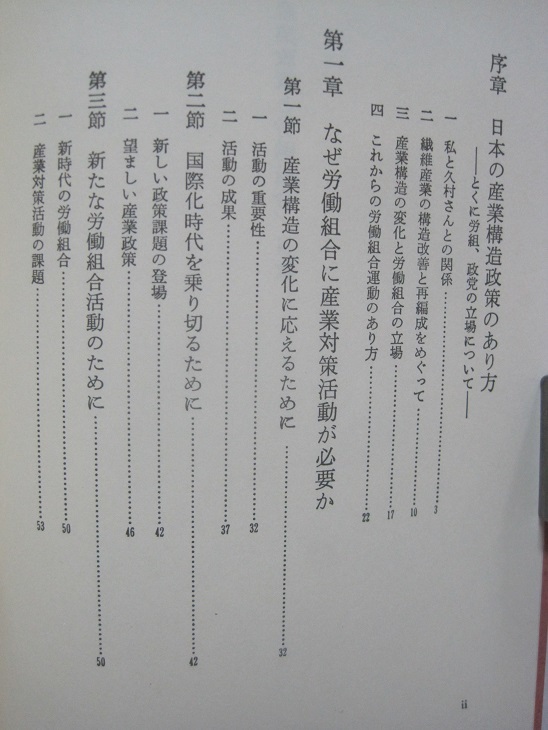 序章 日本の産業構造政策のあり方
――とくに労組、政党の立場について――
一 私と久村さんとの関係……………………3
二 繊維産業の構造改善と再編成をめぐって……………………10
三 産業構造の変化と労働組合の立場……………………17
四 これからの労働組合運動のあり方……………………22
第一章 なぜ労働組合に産業対策活動が必要か
第一節 産業構造の変化に応えるために……………………32
一 活動の重要性……………………32
二 活動の成果……………………37
第二節 国際化時代を乗り切るために……………………42
一 新しい政策課題の登場……………………42
二 望ましい産業政策……………………46
第三節 新たな労働組合活動のために……………………50
一 新時代の労働組合……………………50
二 産業対策活動の課題……………………53
ii